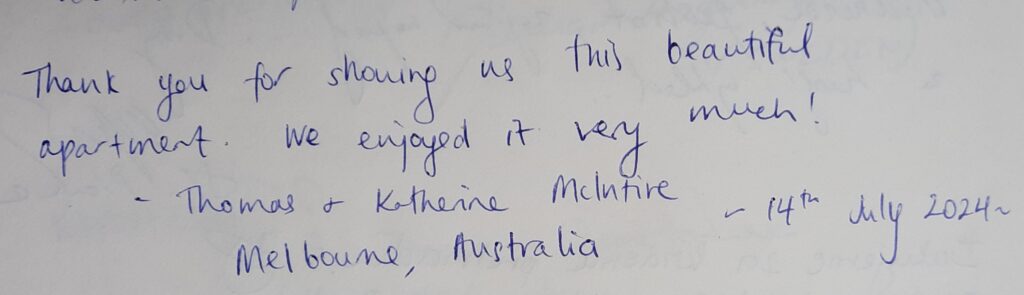 Thank you for showing us this beautiful
apartment. We enjoyed it very much!
- Thomas & Katherine McIntire
~ 14th July 2024~
Melbourne, Australia